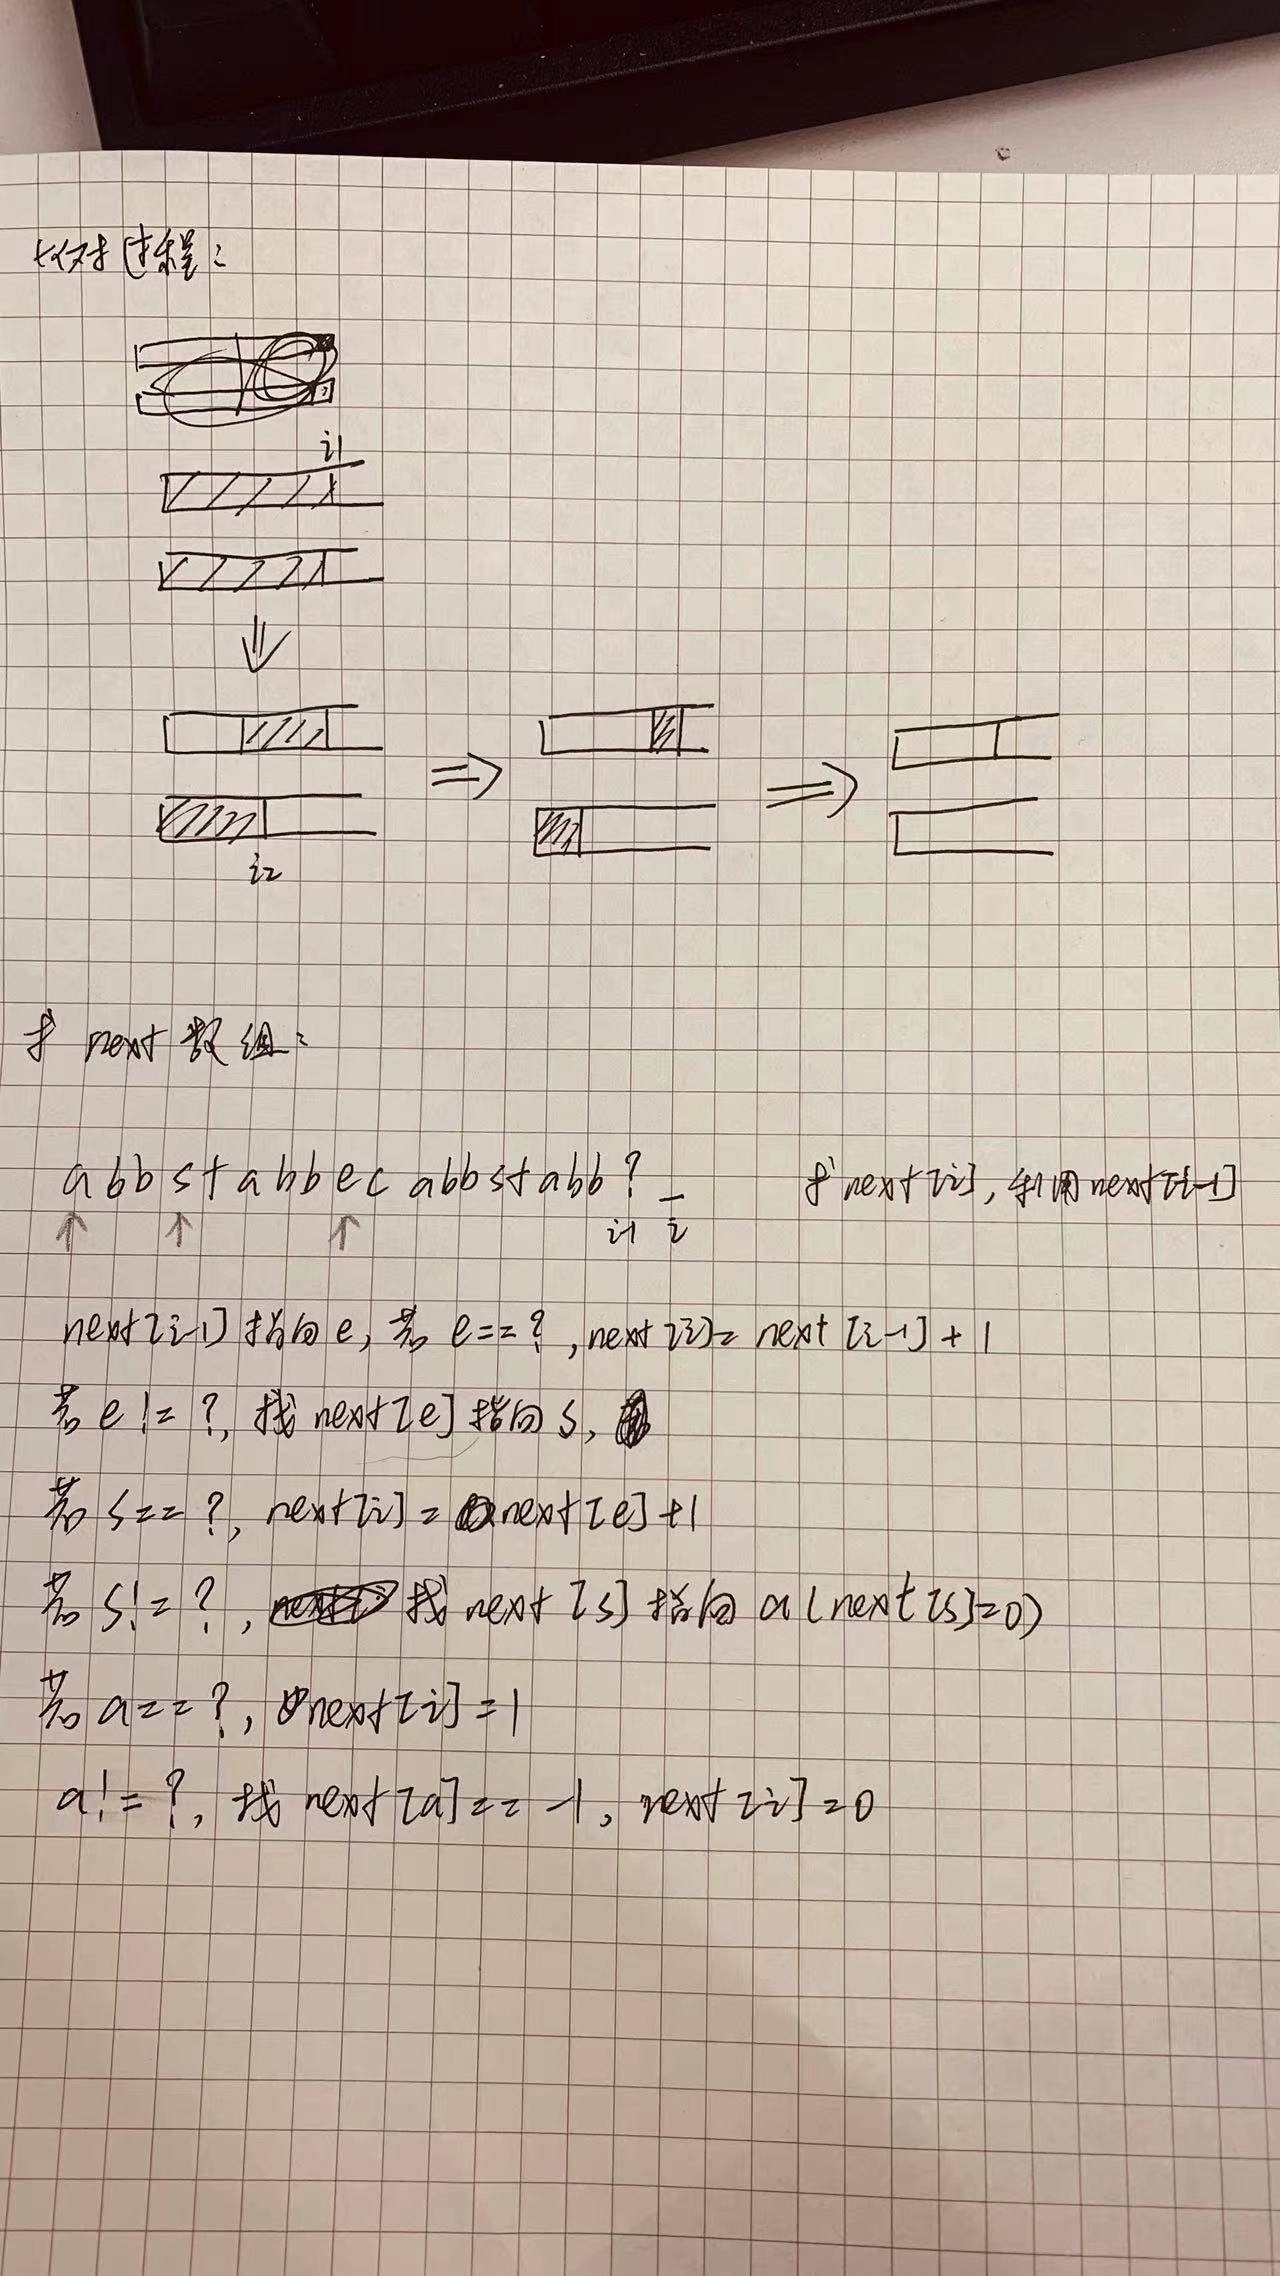 比对过程：
i1
i2
求 next 数组：
abbstabbecabbstabb?_ 求next[i]，利用next[i-1]
i-1 i
next[i-1]指向e，若e==?，next[i]=next[i-1]+1
若e!=?，找next[e]指向s，
若s==?，next[i]=next[e]+1
若s!=?，找next[s]指向a(next[s]=0)
若a==?，next[i]=1
a!=?，找next[a]==-1，next[i]=0